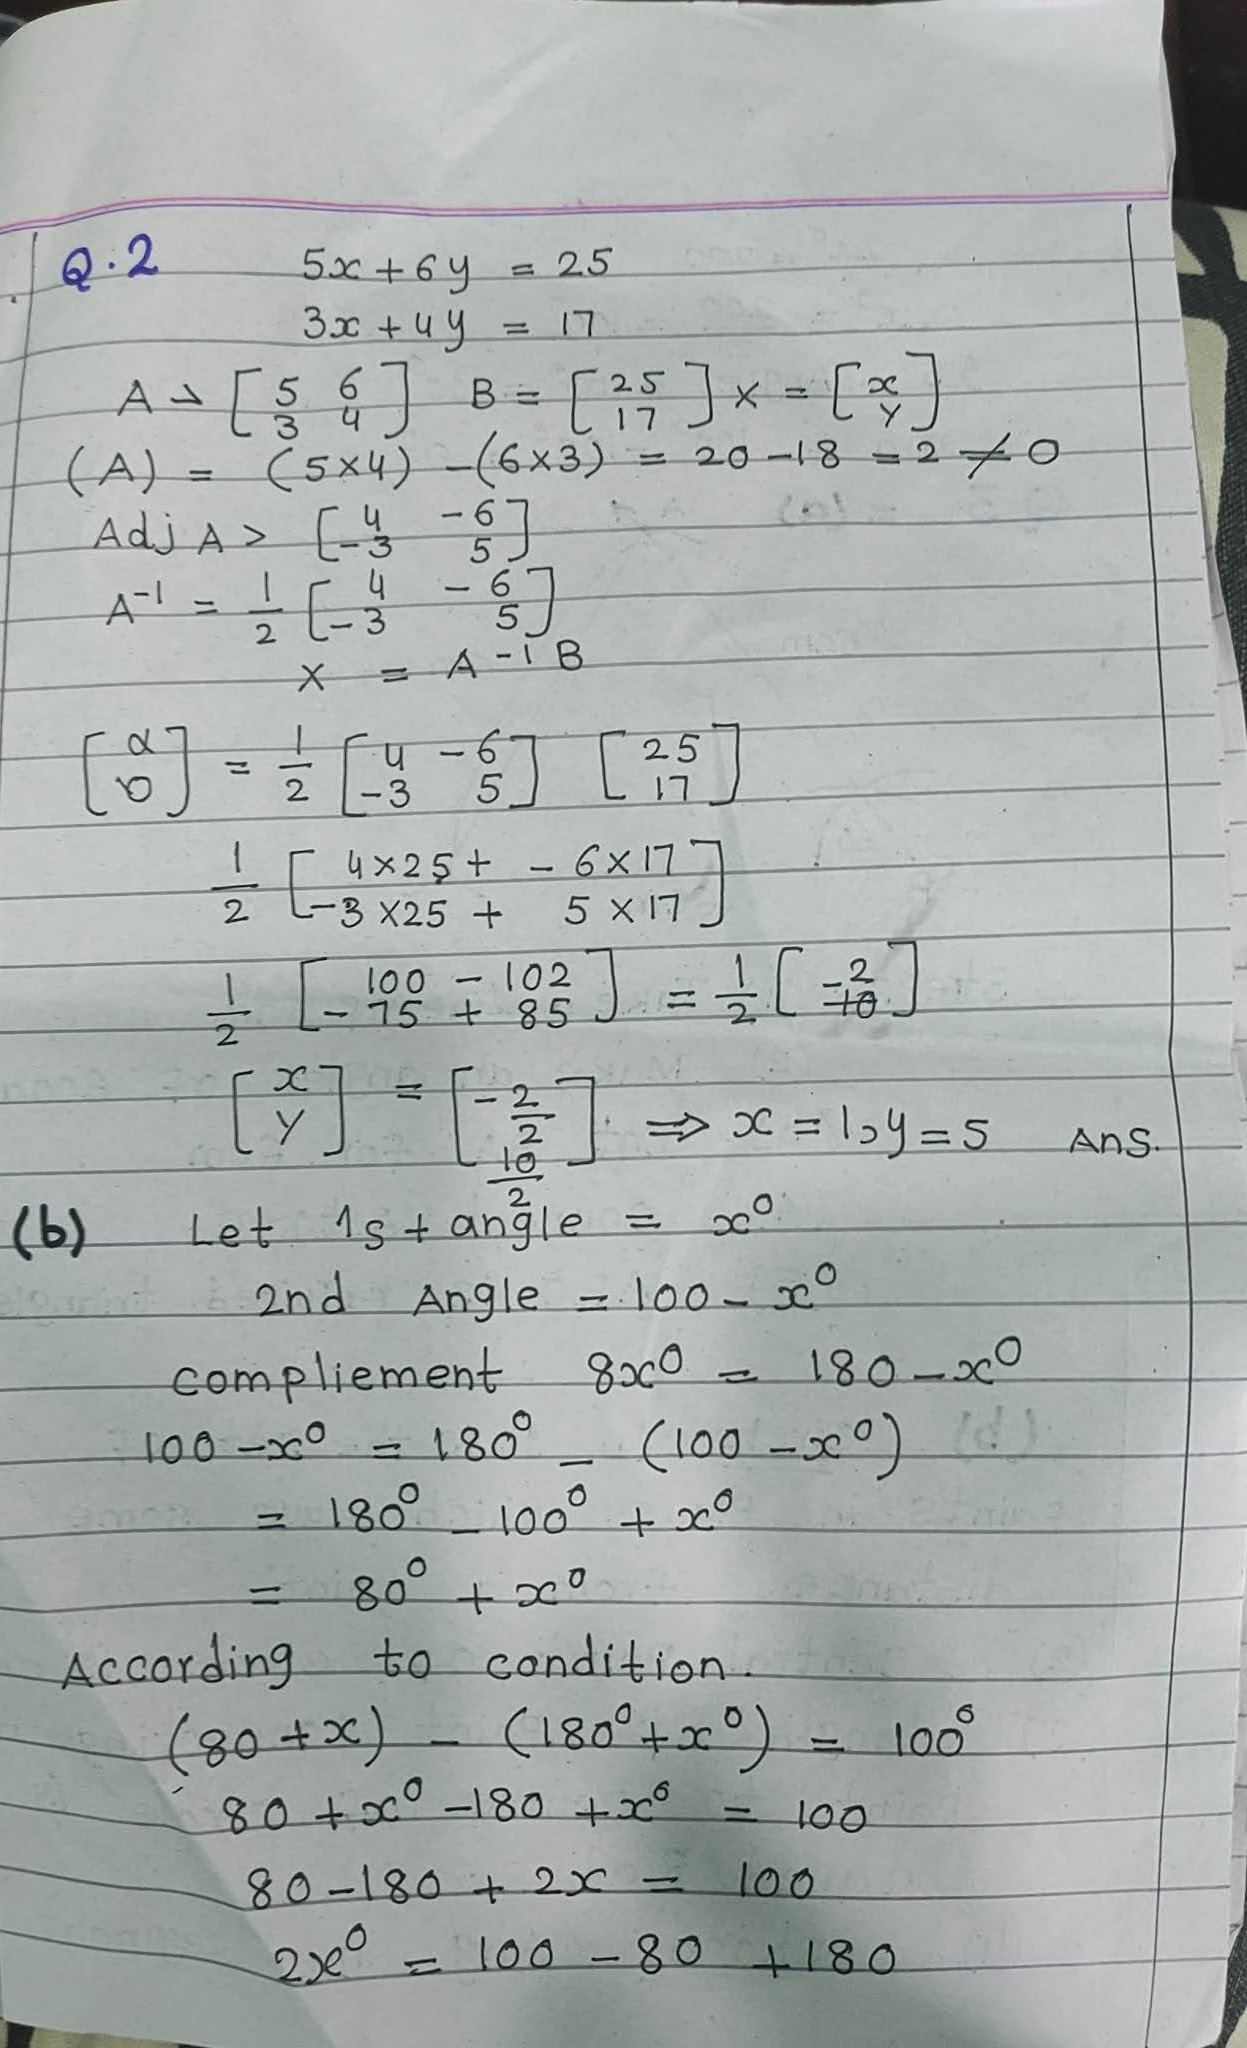 Q.2 5x + 6y = 25
3x + 4y = 17
A > [5 6 3 4] B = [25 17] x = [x y]
(A) = (5×4) - (6×3) = 20 - 18 = 2 ≠ 0
Adj A > [4 -6 -3 5]
A⁻¹ = 1/2 [4 -6 -3 5]
x = A -1 B
= 1/2 [4 -6 -3 5] [25 17]
1/2 [4×25 + -6×17 -3×25 + 5×17]
1/2 [100 - 102 -75 + 85] = 1/2 [-2 10]
[x y] = [-2/2 10/2] ⇒ x = 1, y = 5 Ans.
(b) Let 1st angle = x⁰
2nd Angle = 100 - x⁰
compliement 8x⁰ = 180 - x⁰
100 - x⁰ = 180⁰ - (100 - x⁰)
= 180⁰ - 100⁰ + x⁰
= 80⁰ + x⁰
According to condition.
(80 + x) - (180⁰ + x⁰) = 100⁰
80 + x⁰ - 180 + x⁰ = 100
80 - 180 + 2x = 100
2x⁰ = 100 - 80 + 180